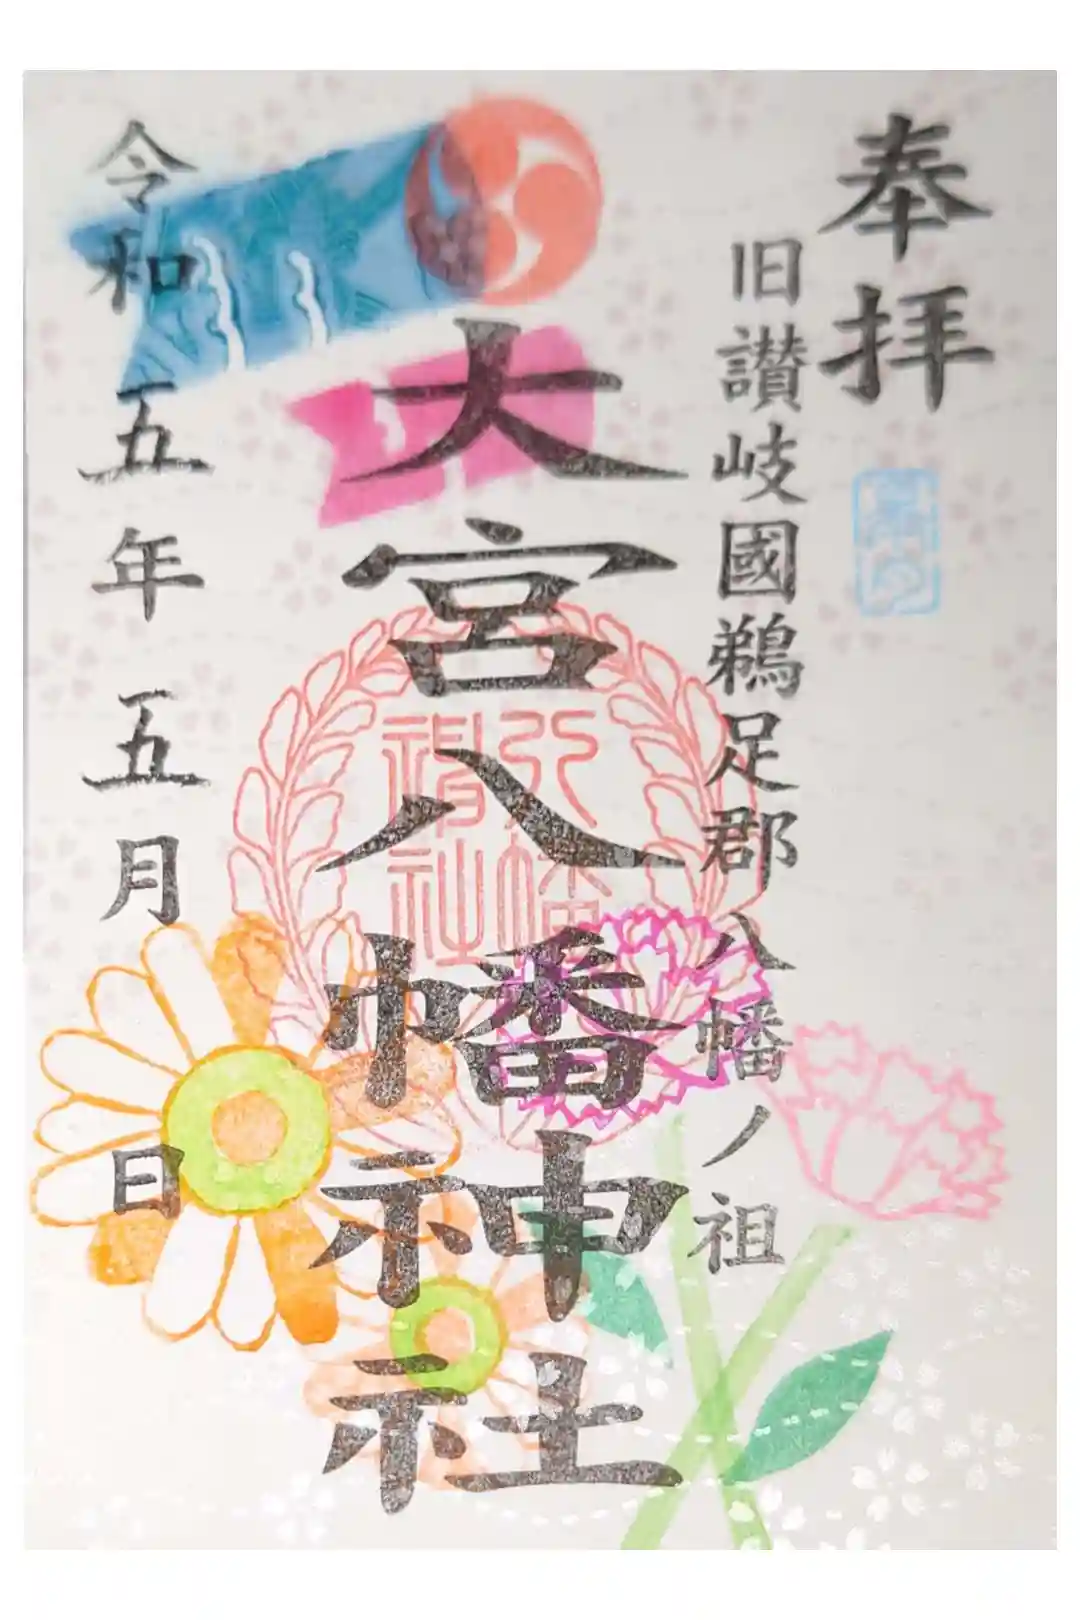 奉拝
旧讃岐國鵜足郡八幡ノ祖
大宮八幡神社
令和五年五月 日